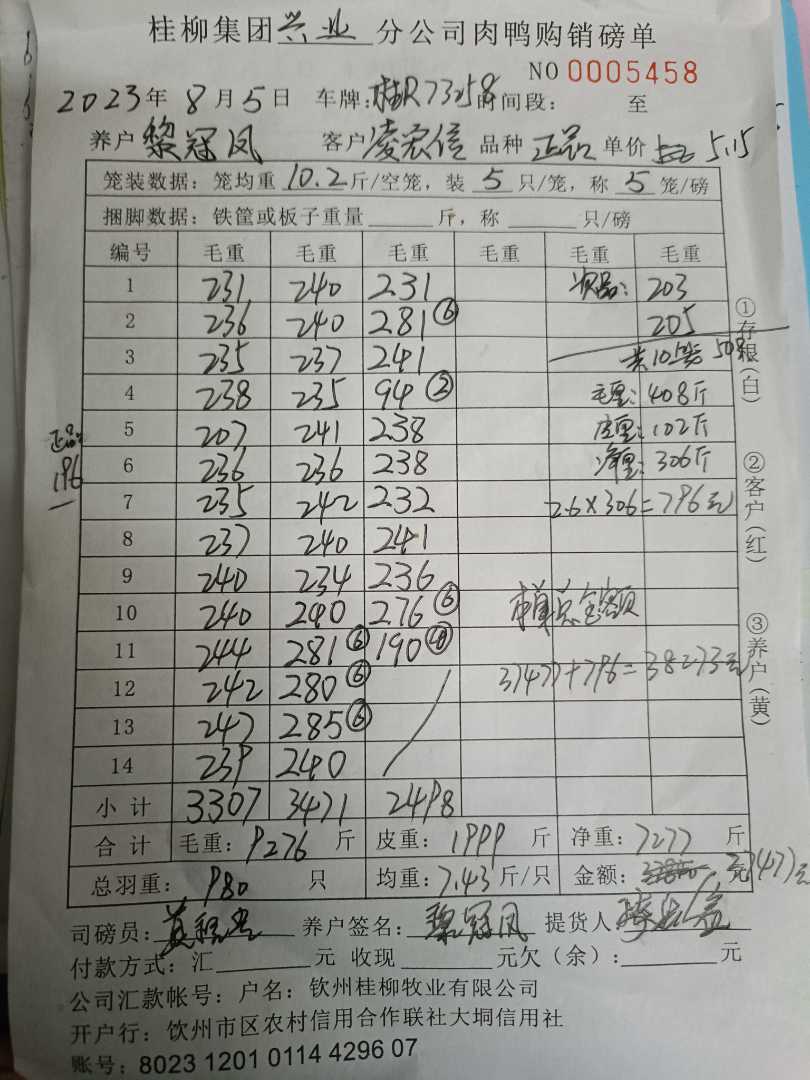 桂柳集团兴业分公司肉鸭购销磅单
NO 0005458
2023年8月5日 车牌:桂R73258时间段: 至
养户黎冠凤 客户凌宏信 品种正品 单价 5.15
笼装数据:笼均重10.2斤/空笼,装5只/笼,称5笼/磅
捆脚数据:铁筐或板子重量 斤,称 只/磅
编号 毛重 毛重 毛重 毛重 毛重 毛重
1 231 240 231 次品: 203
2 236 240 281⑥ 205
3 235 237 241 共10笼 50只
4 238 235 94② 毛重: 408斤
5 207 241 238 皮重: 102斤
6 236 236 238 净重: 306斤
7 235 242 232 2.6×306=796元
8 237 240 241
9 240 234 236
10 240 240 276⑥ 总金额
11 244 281⑥ 190④
12 242 280⑥ 37477+796=38273元
13 247 285⑥
14 239 240
小计 3307 3471 2498
正品: 196
合计 毛重:9276斤 皮重:1999斤 净重:7277斤
总羽重:980只 均重:7.43斤/只 金额:37477元
①存根(白)
②客户(红)
③养户(黄)
司磅员: 养户签名:黎冠凤 提货人:
付款方式:汇 元 收现 元欠(余): 元
公司汇款帐号:户名:钦州桂柳牧业有限公司
开户行:钦州市区农村信用合作联社大垌信用社
账号:8023 1201 0114 4296 07